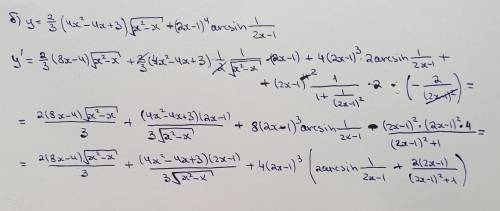 б) y = 2/3 (4x² - 4x + 3) √(x² - x) + (2x-1)⁴ arcsin 1/(2x-1)
y' = 2/3 (8x-4) √(x² - x) + 2/3 (4x² - 4x + 3) 1/2 1/√(x² - x) · (2x-1) + 4(2x-1)³ · 2 arcsin 1/(2x-1) +
+ (2x-1)⁴ 1/(1 + 1/(2x-1)²) · 2 · (- 2/(2x-1)²) =
= 2(8x-4)√(x² - x)/3 + (4x² - 4x + 3)(2x-1)/(3√(x² - x)) + 8(2x-1)³ arcsin 1/(2x-1) - (2x-1)² · (2x-1)² · 4/((2x-1)² + 1) =
= 2(8x-4)√(x² - x)/3 + (4x² - 4x + 3)(2x-1)/(3√(x² - x)) + 4(2x-1)³ (2 arcsin 1/(2x-1) + 2(2x-1)/((2x-1)² + 1))